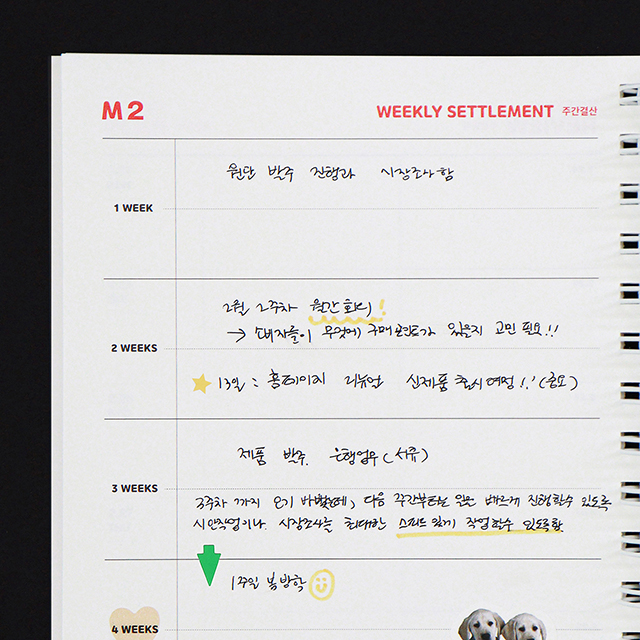 M2
WEEKLY SETTLEMENT 주간결산
원단 발주 진행과 시장조사함
1 WEEK
2월 2주차 월간회의!
→ 소비자들이 무엇에 구매 포인트가 있을지 고민 필요!!
2 WEEKS
13일 : 홈페이지 리뉴얼 신제품 출시예정!! (중요)
제품 발주 은행업무 (서류)
3 WEEKS
3주차 까지 바빴는데, 다음 주간부터는 일은 빠르게 진행할수 있도록
시안작업이나 시장조사를 최대한 스피드 있게 작업할수 있도록함
1주일 봄방학
4 WEEKS